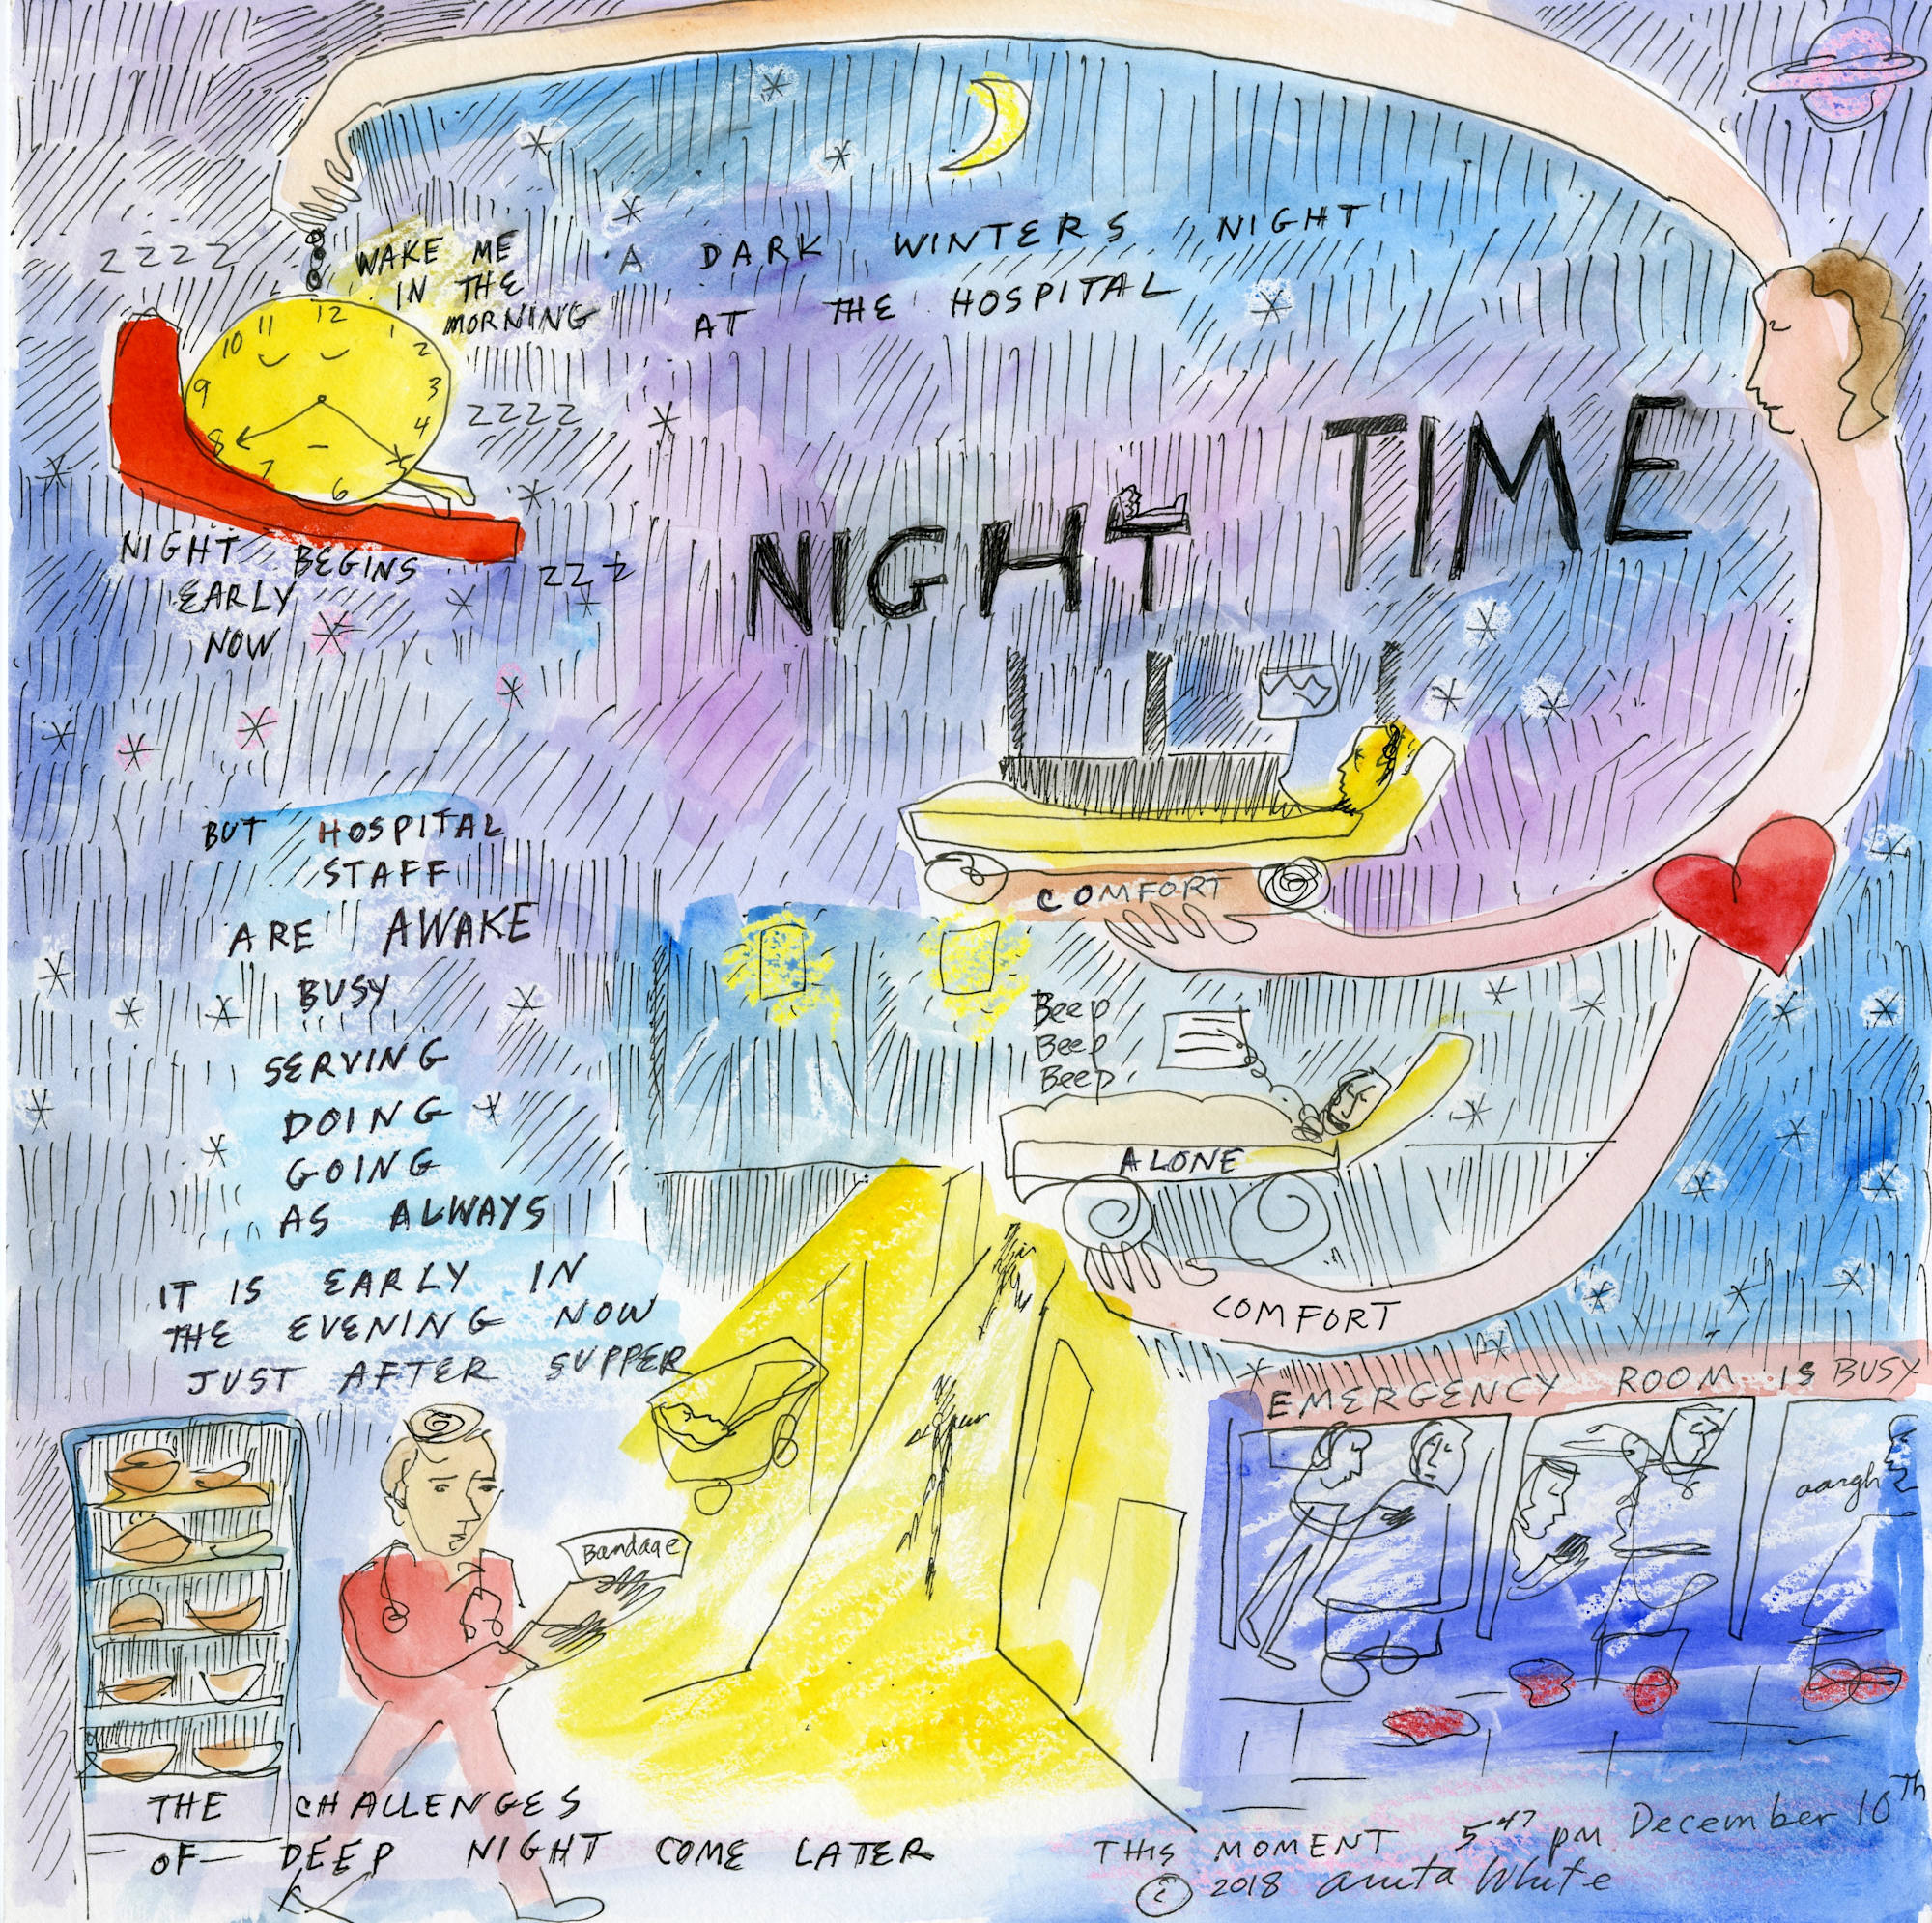 ZZZZ
WAKE ME
IN THE
MORNING
A DARK WINTERS NIGHT
AT THE HOSPITAL
11 12 1
10 2
9 3
8 4
7 6 5
ZZZZ
NIGHT TIME
NIGHT BEGINS
EARLY
NOW
ZZZ
BUT HOSPITAL
STAFF
ARE AWAKE
BUSY
SERVING
DOING
GOING
AS ALWAYS
IT IS EARLY IN
THE EVENING NOW
JUST AFTER SUPPER
COMFORT
Beep
Beep
Beep
ALONE
COMFORT
EMERGENCY ROOM IS BUSY
aargh
Bandage
THE CHALLENGES
OF DEEP NIGHT COME LATER
THIS MOMENT 5:47 pm December 10Th
© 2018 Anita White